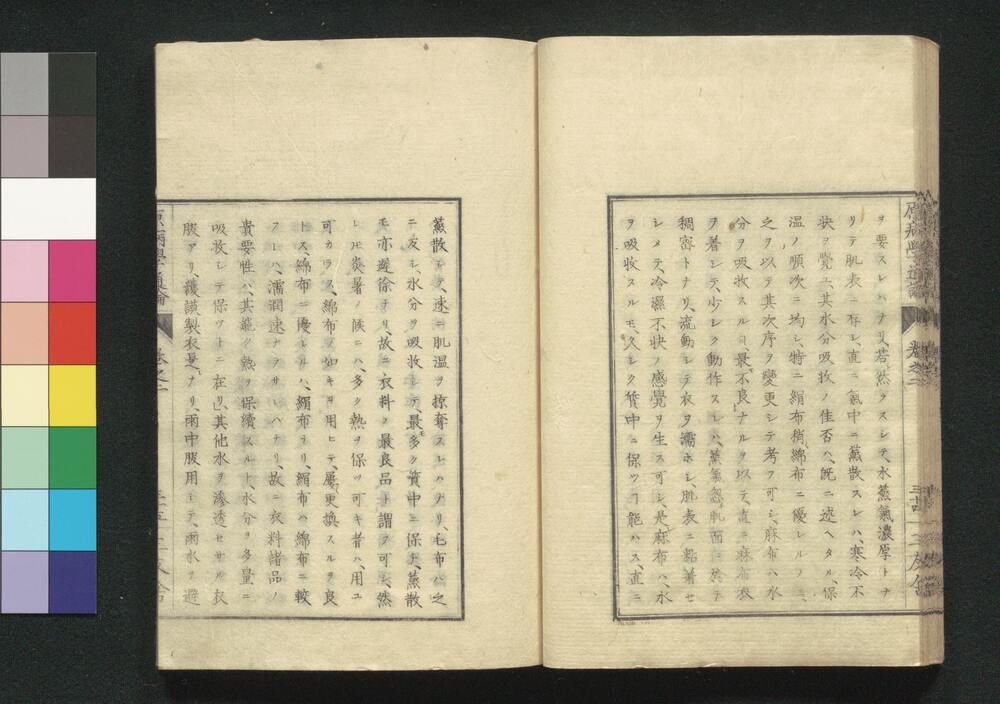 原病學通論 卷之二
ヲ要スレハナリ、若然ラスシテ、水蒸氣濃厚トナ
リテ肌表ニ存シ、直ニ氣中ニ蒸散スレハ、寒冷不
快ヲ覺ユ、其水分吸收ノ佳否ハ、既ニ述ヘタル、保
温ノ順次ニ均シ、特ニ絹布稍綿布ニ優レルノミ、
之ヲ以テ其次序ヲ變更シテ考フ可シ、麻布ハ水
分ヲ吸收スルヿ最不良ナルヲ以テ、直ニ麻布衣
ヲ着シテ、少シク動作スレハ、蒸氣忽肌面ニ於テ
稠密トナリ、流動シテ衣ヲ濡ホシ、肌表ニ黏着セ
シメテ、冷濕不快ノ感覺ヲ生ス可シ、是麻布ハ、水
ヲ吸收スルモ、久シク質中ニ保ツヿ能ハス、直ニ
蒸散シテ、速ニ肌温ヲ掠奪スレハナリ、毛布ハ之
ニ反シ、水分ヲ吸收シテ、最多ク質中ニ保テ、蒸散
モ亦遲徐ナリ、故ニ衣料ノ最良品ト謂フ可シ、然
レ𪜈炎暑ノ候ニハ、多ク熱ヲ保ツ可キ者ハ、用ユ
可カラス、綿布ノ如キヲ用ヒテ、屢更換スルヲ良
トス綿布ニ優レルハ、絹布ナリ、絹布ハ綿布ニ較
フレハ、濡潤速ナラサレハナリ、故ニ衣料諸品ノ
貴要性ハ、其能ク熱ヲ保續スルト、水分ヲ多量ニ
吸收シテ保ツトニ在リ、其他水ヲ滲透セサル衣
服アリ、護謨製衣是ナリ、雨中服用シテ、雨水ヲ避
原病學通論 卷之二